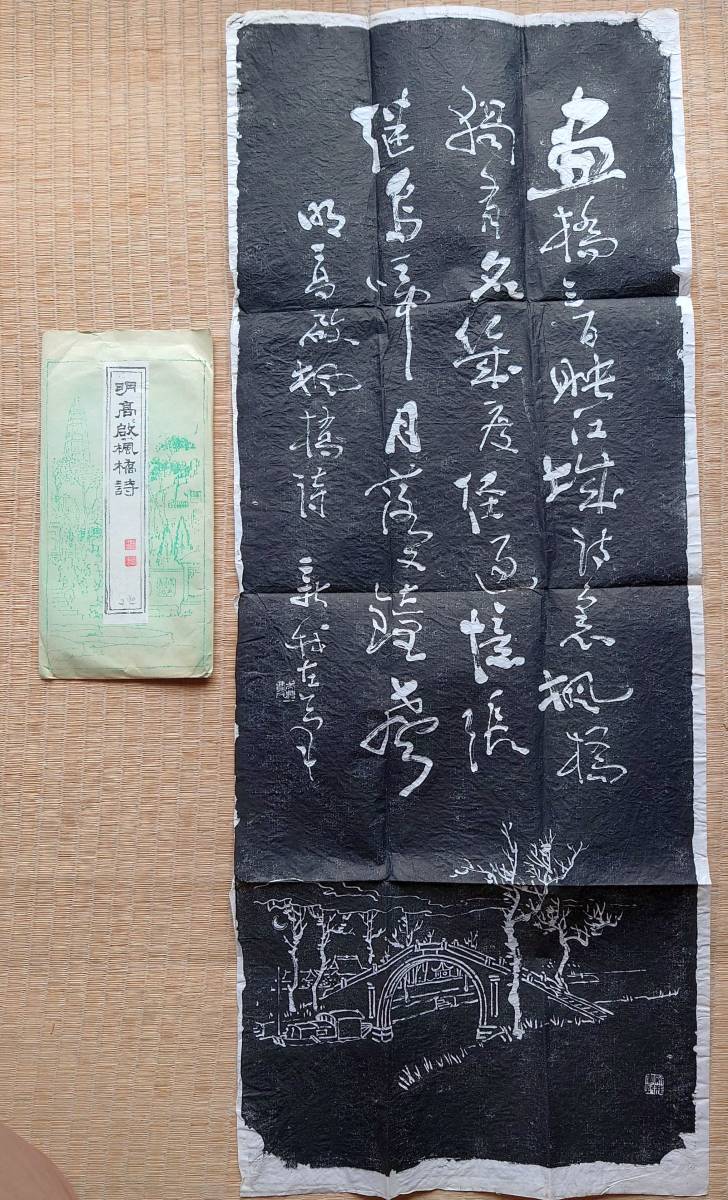 畫橋三百映江城詩裏楓橋
獨有名幾度經過憶張
継烏啼月落又鐘聲
明高啟楓橋詩 新我左筆
明高啟楓橋詩